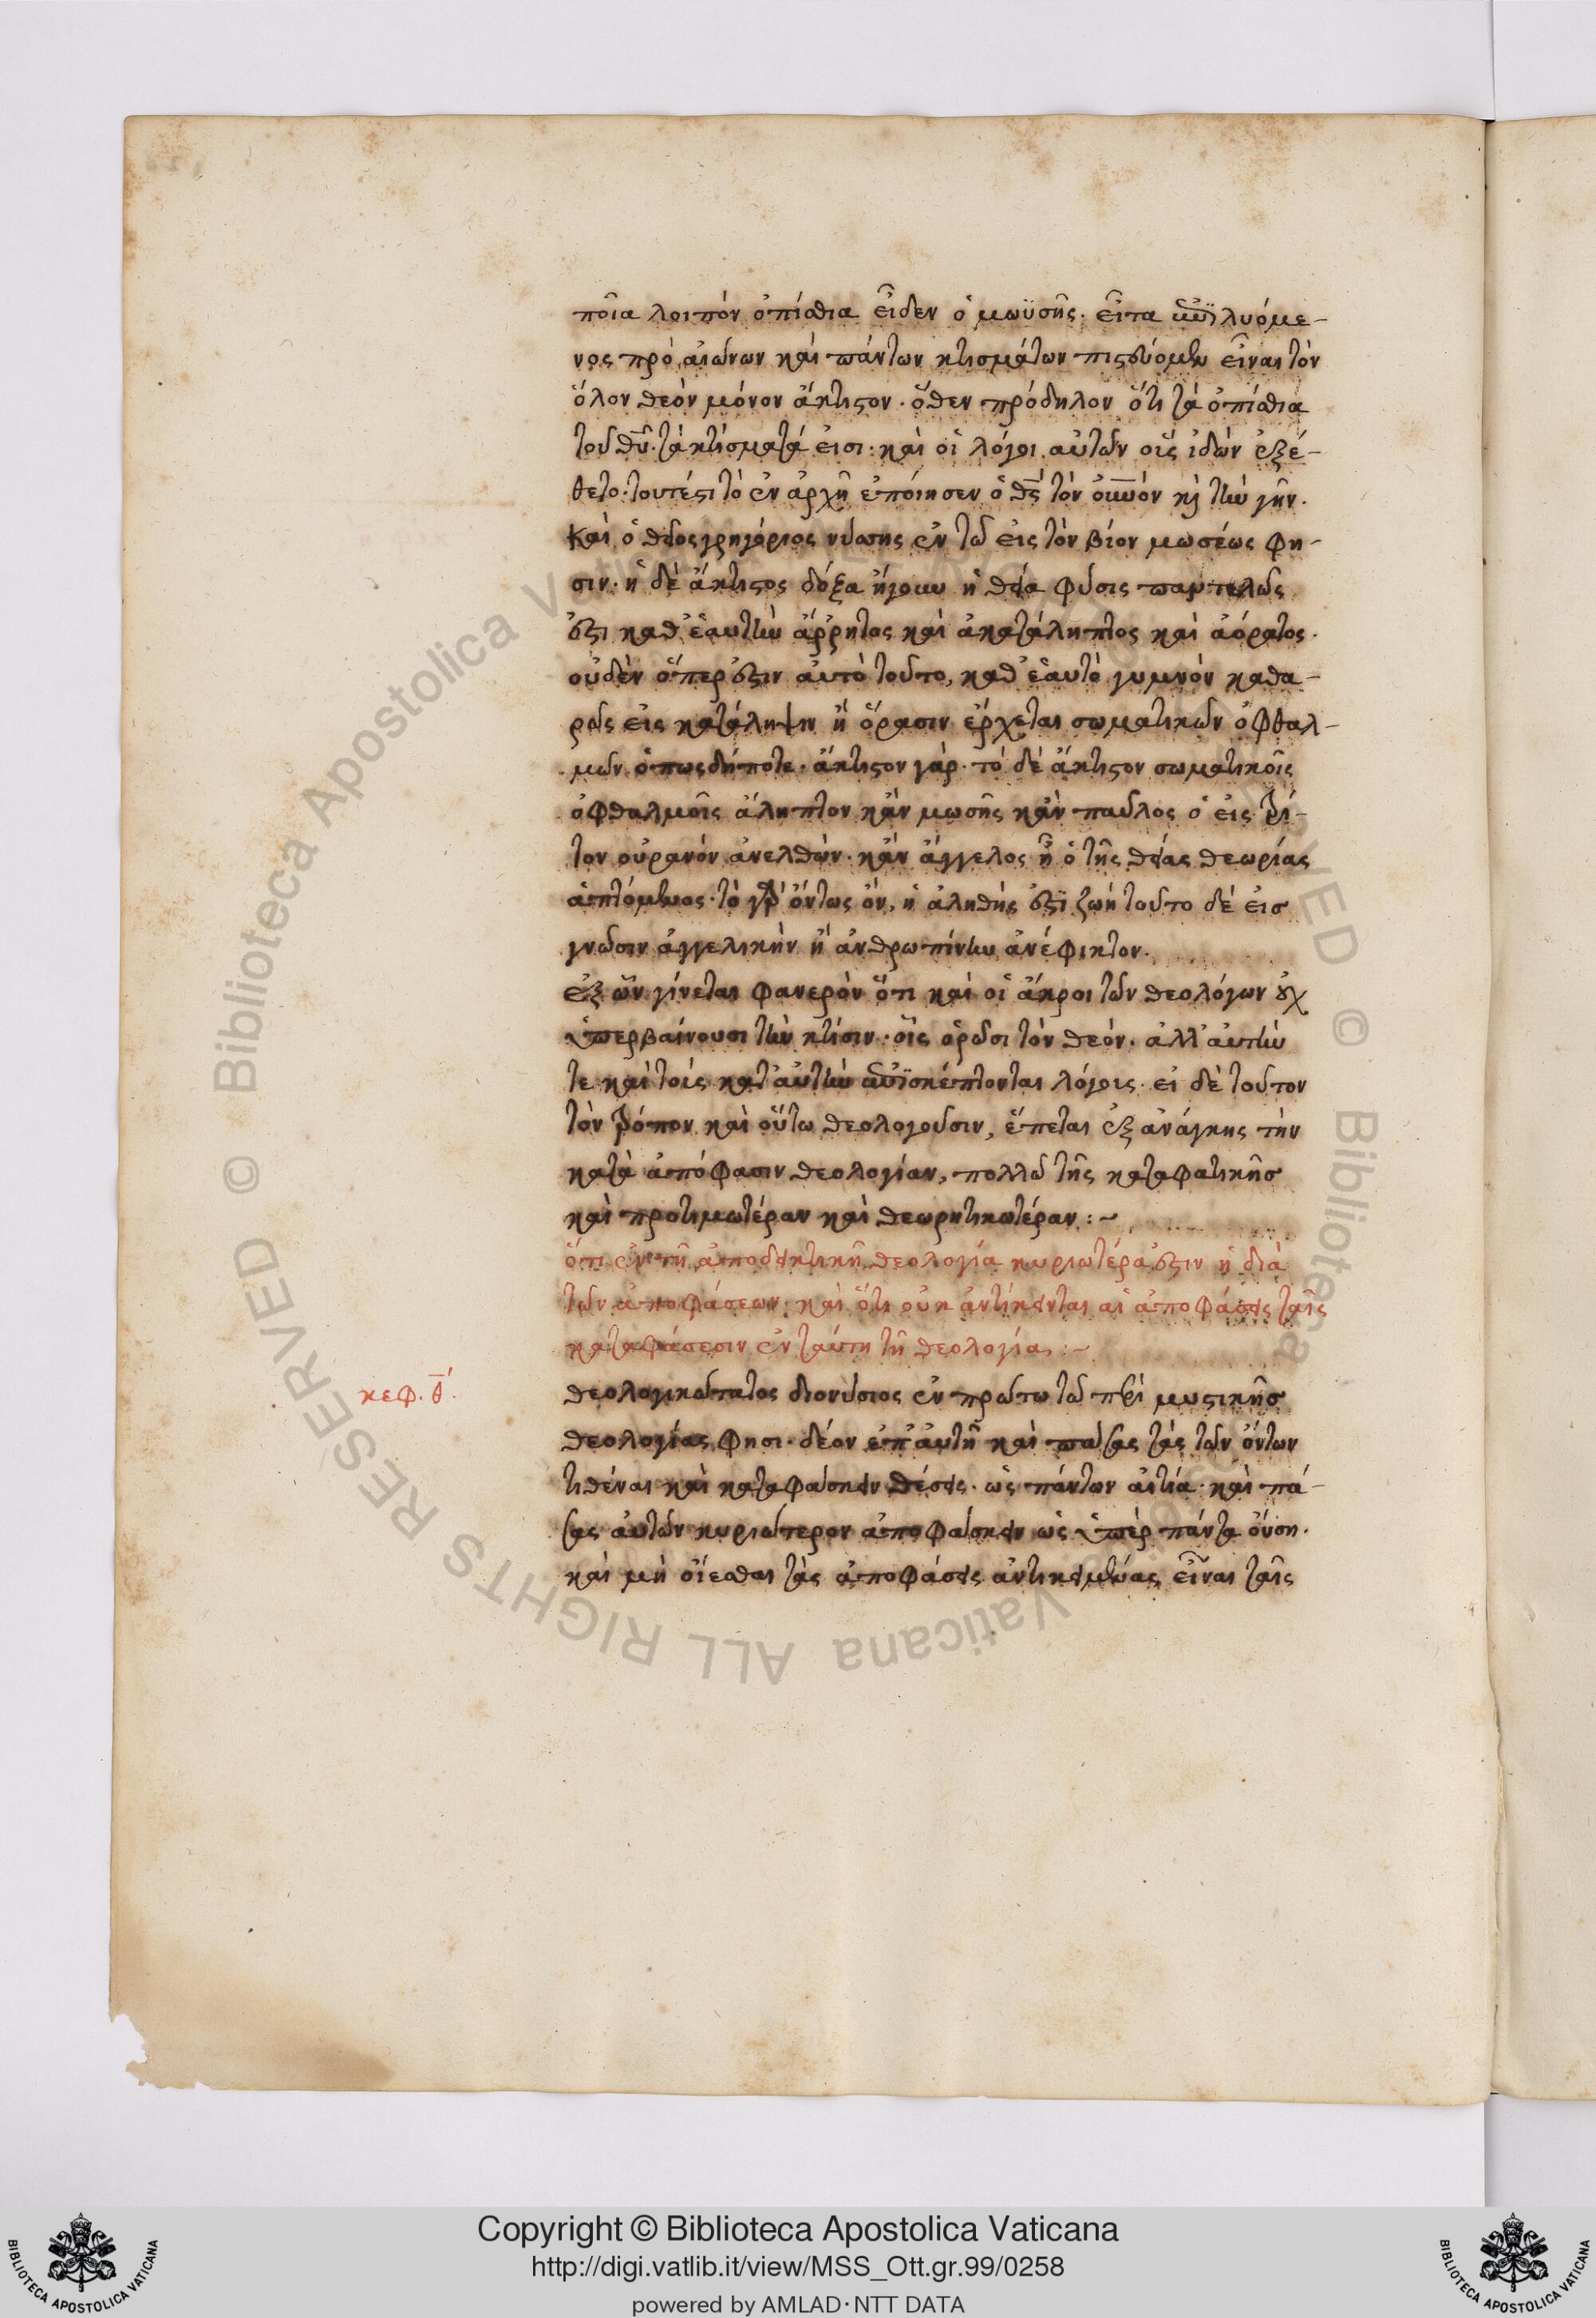 ποῖα λοιπὸν ὀπίσθια εἶδεν ὁ μωϋσῆς. εἶτα λυόμε-
νος πρὸ αἰώνων καὶ πάντων κτισμάτων πιστεύομεν εἶναι τὸν
ὅλον θεὸν μόνον ἄκτιστον. ὅθεν πρόδηλον ὅτι τὰ ὀπίσθια
τοῦ θῦ. τὰ κτίσματά εἰσι. καὶ οἱ λόγοι αὐτῶν οἷς ἰδὼν ἐξέ-
θετο. τουτέστι τὸ ἐν ἀρχῇ ἐποίησεν ὁ θς τὸν οὐνὸν κ τὴν γῆν.
Καὶ ὁ θεῖος γρηγόριος νύσσης ἐν τῶ εἰς τὸν βίον μωσέως φη-
σιν. ἡ δὲ ἄκτιστος δόξα ἤγουν ἡ θεία φύσις παντελῶς
ἐστι καθ' ἑαυτὴν ἄῤῥητος καὶ ἀκατάληπτος καὶ ἀόρατος.
οὐδὲν ὅπερ ἐστιν αὐτὸ τοῦτο, καθ' ἑαυτὸ γυμνὸν καθα-
ρῶς εἰς κατάληψιν ἢ ὅρασιν ἔρχεται σωματικῶν ὀφθαλ-
μῶν ὁπωςδήποτε. ἄκτιστον γάρ. τὸ δὲ ἄκτιστον σωματικοῖς
ὀφθαλμοῖς ἄληπτον κἂν μωσῆς κἂν παῦλος ὁ εἰς τρί-
τον οὐρανὸν ἀνελθών. κἂν ἄγγελος ἦ ὁ τῆς θείας θεωρίας
ἁπτόμενος. τὸ γὰρ ὄντως ὄν, ἡ ἀληθής ἐστὶ ζωὴ τοῦτο δὲ εἰσ
γνῶσιν ἀγγελικὴν ἢ ἀνθρωπίνην ἀνέφικτον.
ἐξ ὧν γίνεται φανερὸν ὅτι καὶ οἱ ἄκροι τῶν θεολόγων οὐχ
ὑπερβαίνουσι τὴν κτίσιν. οἷς ὁρῶσι τὸν θεόν. ἀλλ' αὐτὴν
τε καὶ τοῖς κατ' αὐτὴν ἐπισκέπτονται λόγοις. εἰ δὲ τοῦτον
τὸν τρόπον καὶ οὕτω θεολογοῦσιν, ἕπεται ἐξ ἀνάγκης τὴν
κατὰ ἀπόφασιν θεολογίαν, πολλῶ τῆς καταφατικῆσ
καὶ προτιμωτέραν καὶ θεωρητικωτέραν:~
ὅτι ἐν τῆ ἀποδεικτικῆ θεολογία κυριωτέρα ἐστιν ἡ διὰ
τῶν ἀποφάσεων. καὶ ὅτι οὐκ ἀντίκεινται αἱ ἀποφάσεις ταῖς
καταφάσεσιν ἐν ταύτη τῆ θεολογία:~
κεφ. θ̅.
θεολογικώτατος διονύσιος ἐν πρώτω τῶ περὶ μυστικῆσ
θεολογίας φησι. δέον ἐπ' αὐτῆ καὶ πάσας τὰς τῶν ὄντων
τιθέναι καὶ καταφάσκειν θέσεις. ὡς πάντων αἰτία. καὶ πά-
σας αὐτῶν κυριώτερον ἀποφάσκειν ὡς ὑπὲρ πάντα οὔση.
καὶ μὴ οἴεσθαι τὰς ἀποφάσεις ἀντικειμένας εἶναι ταῖς
Copyright © Biblioteca Apostolica Vaticana
http://digi.vatlib.it/view/MSS_Ott.gr.99/0258
powered by AMLAD·NTT DATA
BIBLIOTECA APOSTOLICA VATICANA
BIBLIOTECA APOSTOLICA VATICANA
© Biblioteca Apostolica Vaticana ALL RIGHTS RESERVED